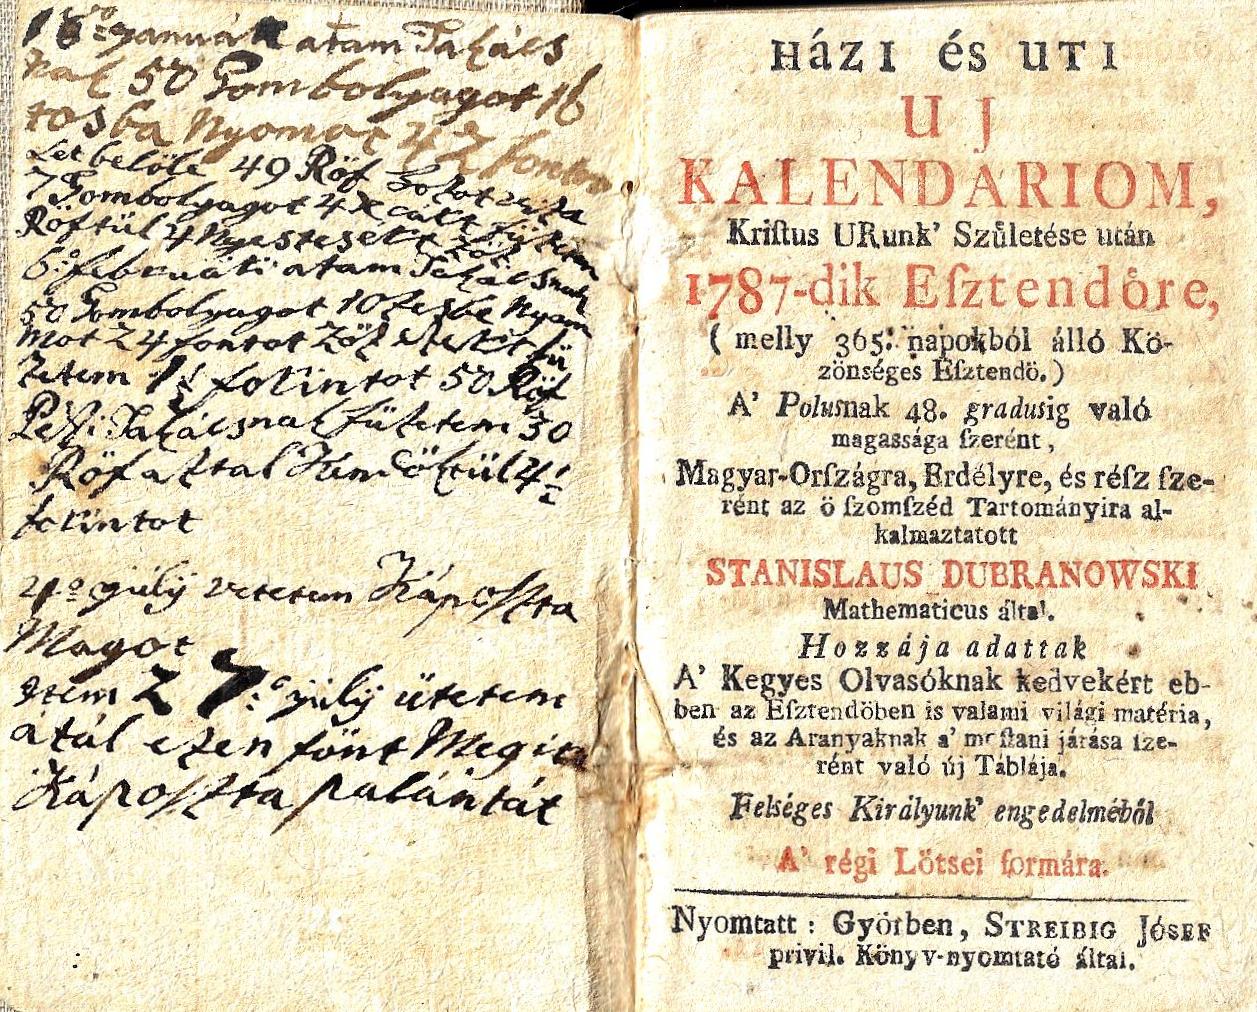 18º január atam Takács
nak 50 Gombolyagot 16
tosba Nyomot 42 fontot
Let belöle 49 Röf
7 Gombolyagot
Röftül 4
6:º februári atam Takácsnak
50 Gombolyagot 10 zesbe Nyom
mot 24 fontot
zetem 1½ forintot 50 Röf
Pesti Takácsnak fizetem 30
Röf aztal 4½
forintot
21º julÿ vetetem Káposzta
Magot
Item 27:º julÿ ütetem
átál ezen fönt Megirt
Káposzta palántát
HáZI éS UTI
UJ
KALENDARIOM,
Kriſtus URunk' Születése után
1787-dik Eſztendőre,
( melly 365. napokból álló Kö-
zönséges Eſztendö.)
A' Polusnak 48. gradusig való
magassága ſzerént,
Magyar-Orſzágra, Erdélyre, és réſz ſze-
rént az ö ſzomſzéd Tartományira al-
kalmaztatott
STANISLAUS DUBRANOWSKI
Mathematicus által.
Hozzája adattak
A' Kegyes Olvasóknak kedvekért eb-
ben az Eſztendöben is valami világi matéria,
és az Aranyaknak a' moſtani járása ſze-
rént való új Táblája.
Felséges Királyunk' engedelméből
A' régi Lötsei formára.
Nyomtatt: Györben, STREIBIG JÓSEF
privil. Könyv-nyomtató által.